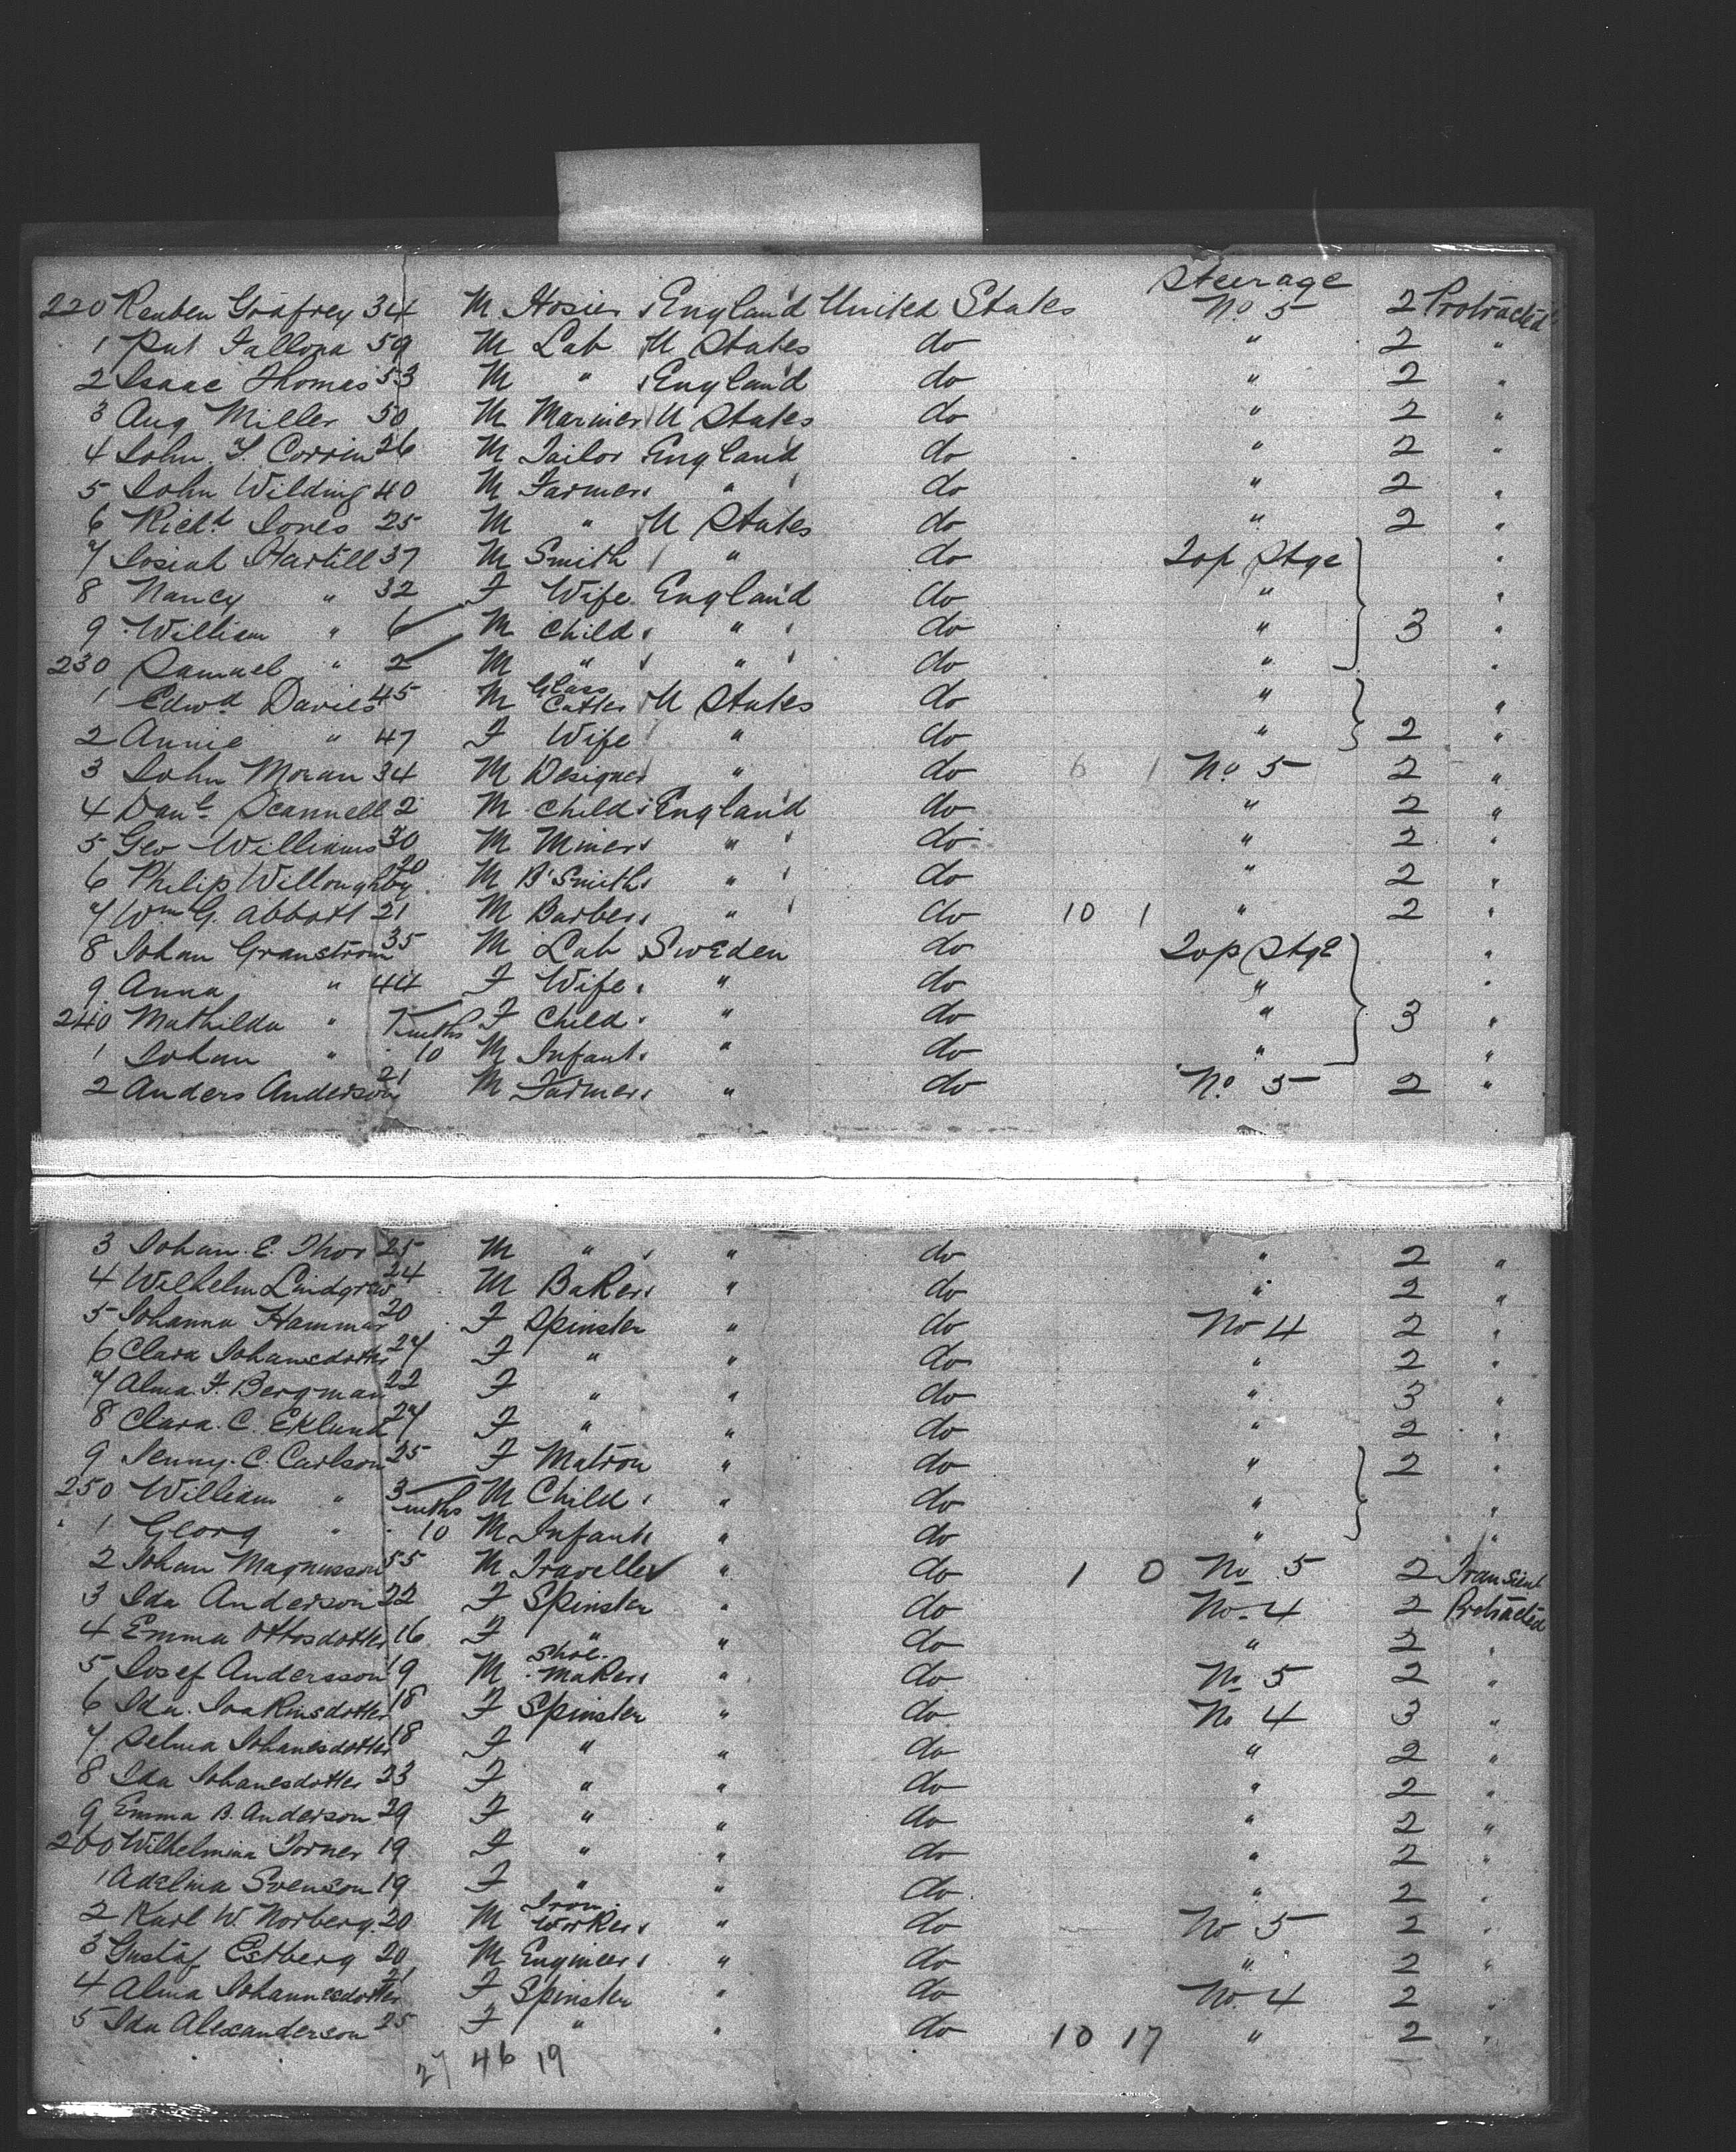 Steerage
220 Reuben Godfrey 34 M Hosier England United States No 5 2 Protracted
1 Pat Fallona 59 M Lab U States do " 2 "
2 Isaac Thomas 53 M " England do " 2 "
3 Aug Miller 50 M Mariner U States do " 2 "
4 John. F. Corrin 26 M Tailor England do " 2 "
5 John Wilding 40 M Farmer " do " 2 "
6 Richd Jones 25 M " U States do " 2 "
7 Josiah Hartill 37 M Smith " do 2op Stge "
8 Nancy " 32 F Wife England do " "
9 William " 6 M Child " do " 3 "
230 Samuel " 2 M " " do " "
1 Edwd Davies 45 M Glass Cutter U States do " "
2 Annie " 47 F Wife " do " 2 "
3 John Moran 34 M Designer " do 6 1 No 5 2 "
4 Danl Scannell 2 M Child England do " 2 "
5 Geo Williams 30 M Miner " do " 2 "
6 Philip Willoughby 20 M B'Smith " do " 2 "
7 Wm G. Abbott 21 M Barber " do 10 1 " 2 "
8 Johan Granstrom 35 M Lab Sweden do 2op Stge "
9 Anna " 44 F Wife " do " "
240 Mathilda " 7 F Child " do " 3 "
1 Johan " mths 10 M Infant " do " "
2 Anders Anderson 21 M Farmer " do No 5 2 "
3 Johan. E. Thor 25 M " " do " 2 "
4 Wilhelm Lindgren 24 M Baker " do " 2 "
5 Johanna Hammar 20 F Spinster " do No 4 2 "
6 Clara Johansdotter 27 F " " do " 2 "
7 Alma. F. Bergman 22 F " " do " 3 "
8 Clara. C. Eklund 27 F " " do " 2 "
9 Jenny. C. Carlson 25 F Matron " do " 2 "
250 William " 3 M Child " do " "
1 Georg " mths 10 M Infant " do " "
2 Johan Magnusson 55 M Traveller " do 1 0 No 5 2 Transient
3 Ida Anderson 22 F Spinster " do No 4 2 Protracted
4 Emma Ottosdotter 16 F " " do " 2 "
5 Josef Andersson 19 M Shoe Maker " do No 5 2 "
6 Ida. Joakimsdotter 18 F Spinster " do No 4 3 "
7 Selma Johanesdotter 18 F " " do " 2 "
8 Ida Johanesdotter 23 F " " do " 2 "
9 Emma B. Anderson 29 F " " do " 2 "
260 Wilhelmina Torner 19 F " " do " 2 "
1 Adelina Svenson 19 F " " do " 2 "
2 Karl W. Norberg 20 M Iron Worker " do No 5 2 "
3 Gustaf Estberg 20 M Engineer " do " 2 "
4 Alma Johannesdotter 21 F Spinster " do No 4 2 "
5 Ida Alexanderson 25 F " " do 10 17 " 2 "
27 46 19